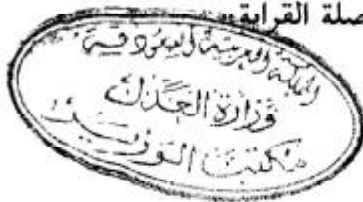 صلة القرابة
المملكة العربية السعودية
وزارة العدل
مكتب الوزير